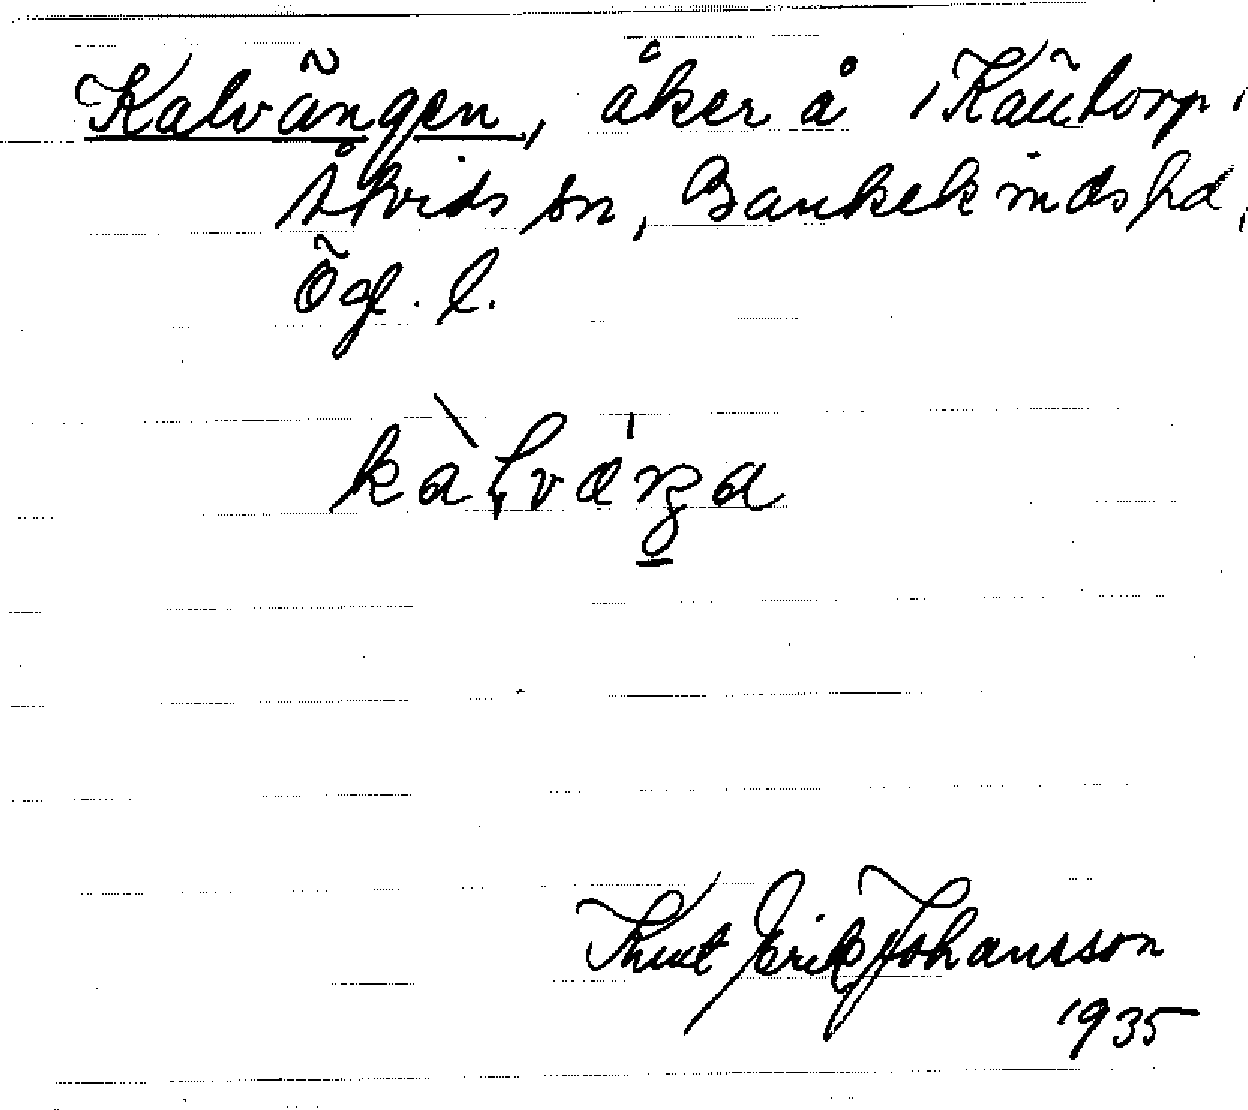 Kalvängen, åker å Kättorp i
Åtvids sn, Bankekinds hd,
Ögl. l.
kàlväŋa
Knut Erik Johansson
1935